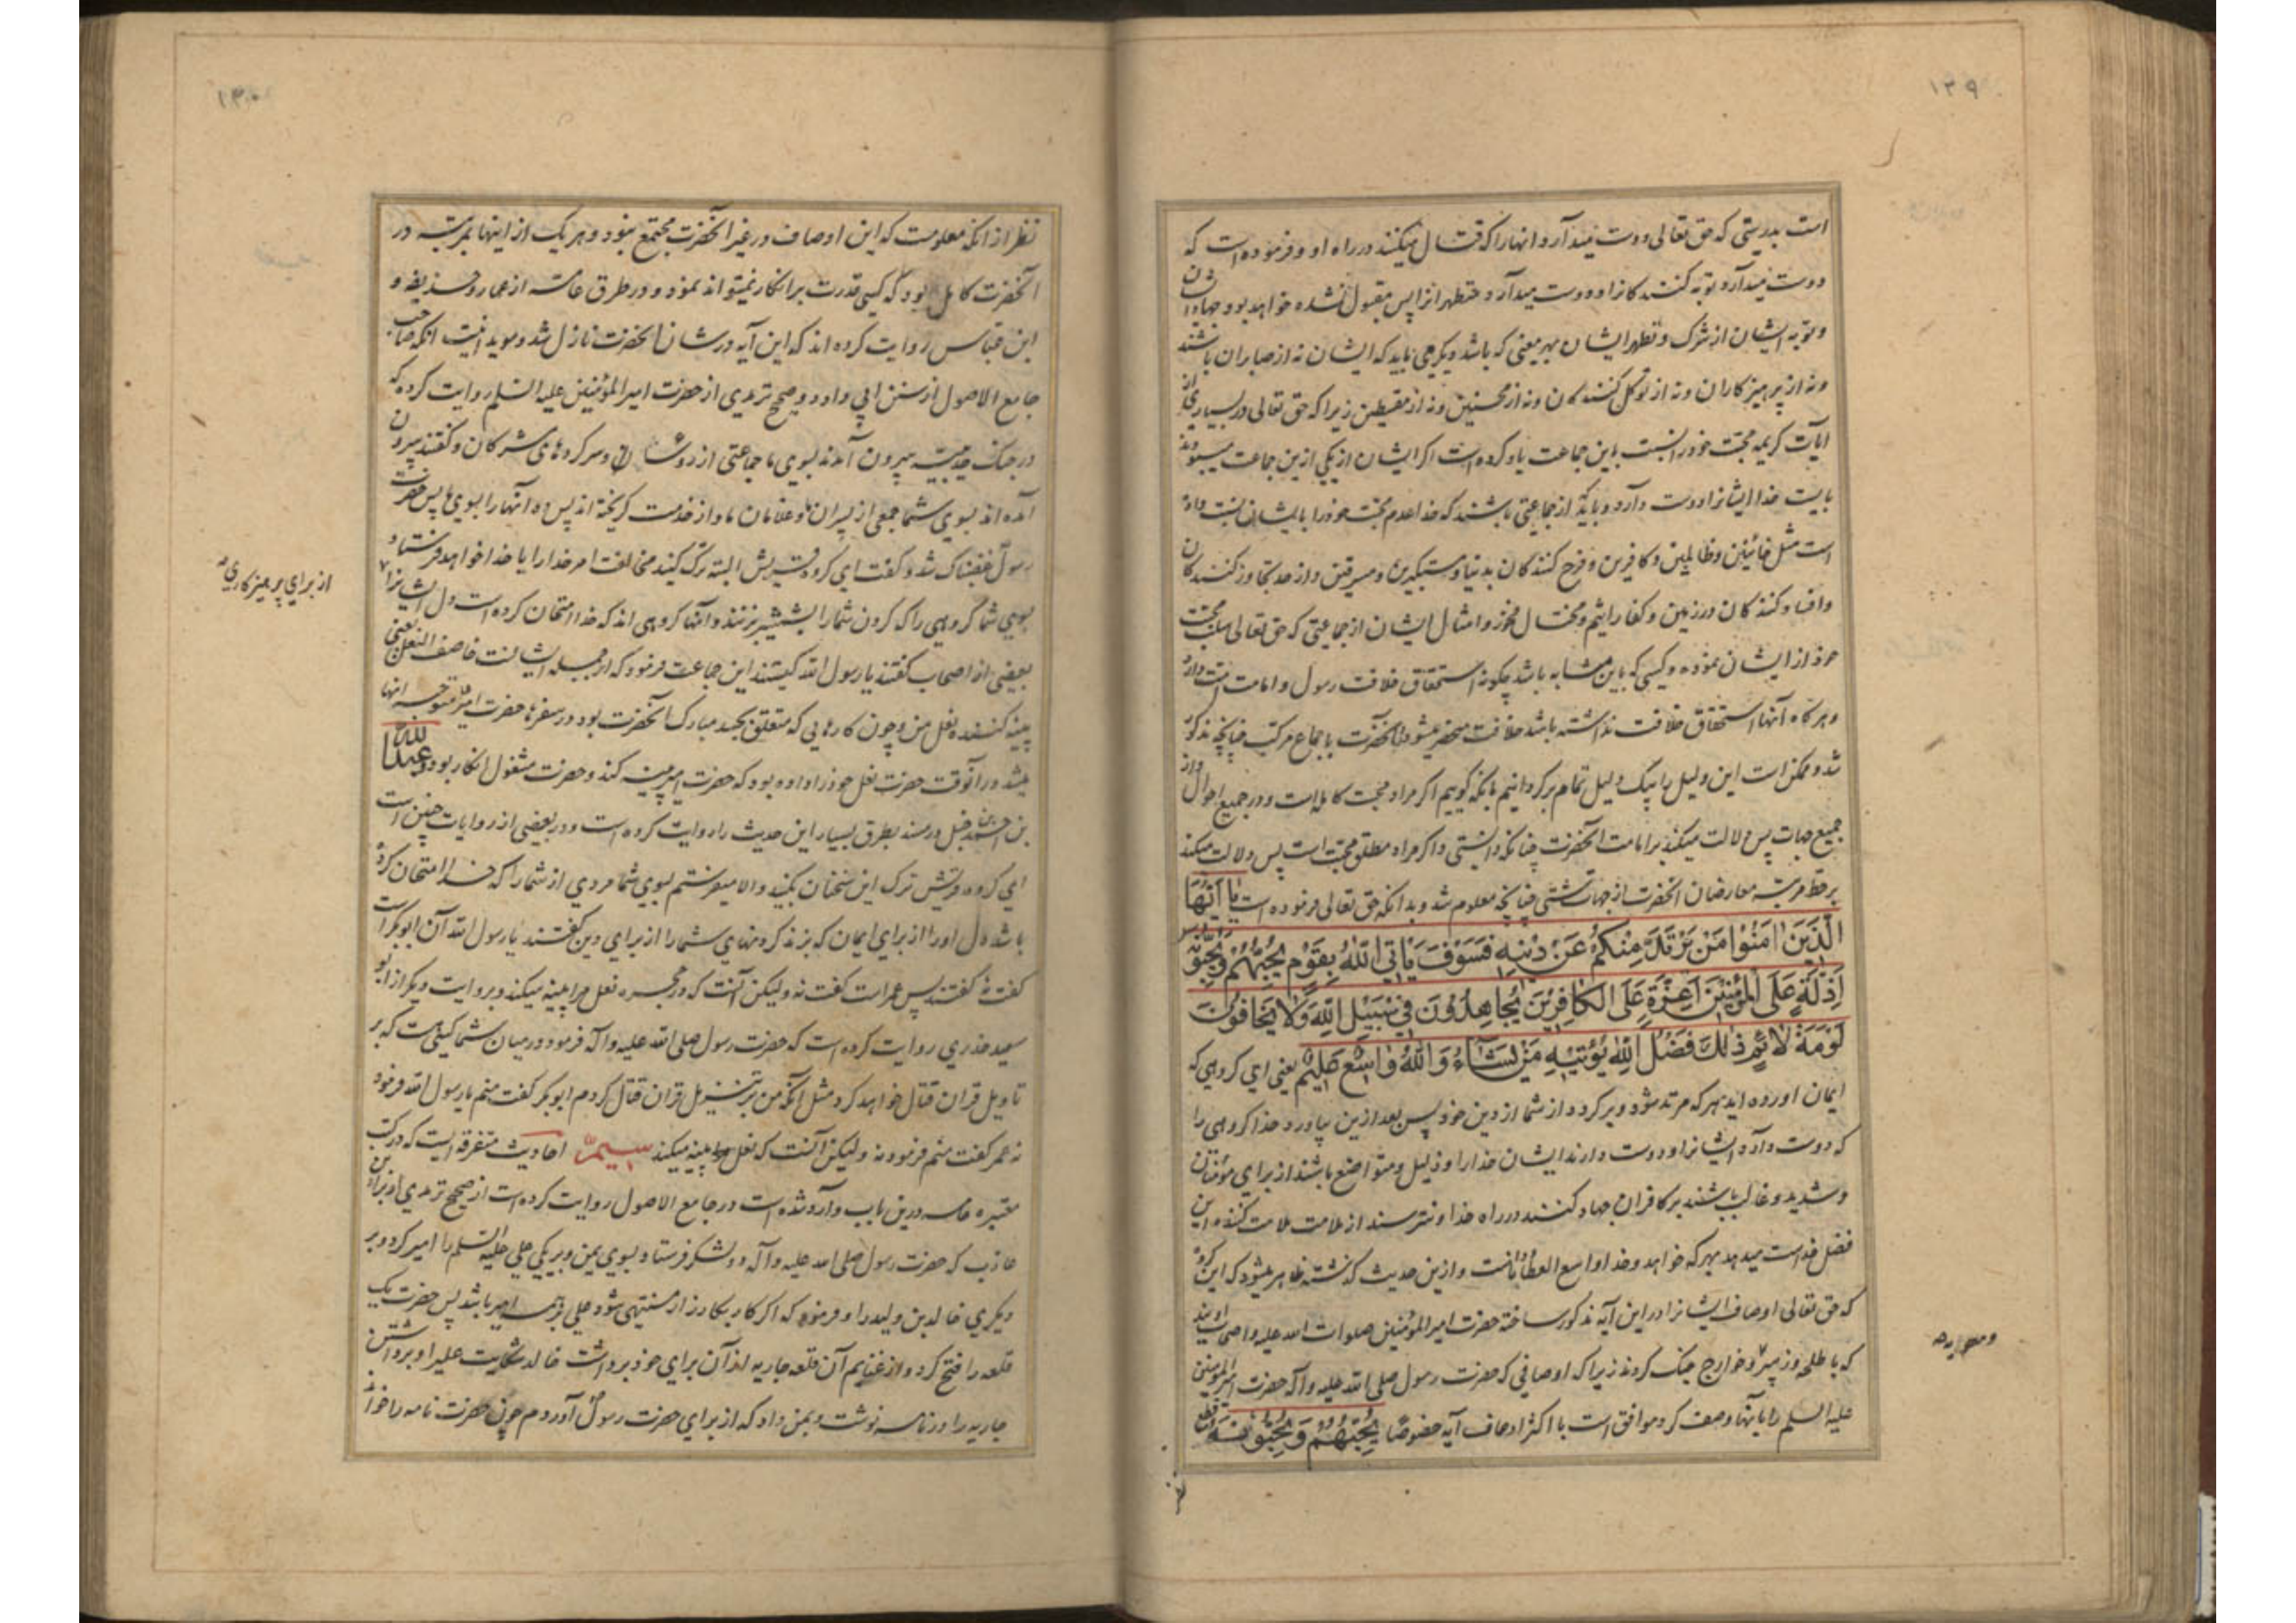 ۱۲۹
است بدرستی که حق تعالی دوست میدارد انهارا که قتال میکنند در راه او و فرموده است که
دوست میدارد توبه کنندکانرا و دوست میدارد متطهرانرا پس مقبول نشده خواهد بود جهاد ایشان
و توبه ایشان از شرک و تطهر ایشان بهر معنی که باشد و دیکر می باید که ایشان نه از صابران باشند
و نه از پرهیزکاران و نه از توکل کنندکان و نه از محسنین و نه از مقسطین زیرا که حق تعالی در بسیاری از
ایات کریمه محبت خود را نسبت باین جماعت یاد کرده است اکر ایشان از یکی ازین جماعت میبودند
بایست خدا ایشانرا دوست دارد و باید که از جماعتی باشند که خدا عدم محبت خود را بایشان نسبت داده
است مثل خائنین و ظالمین و کافرین و فرح کنندکان بدنیا و مستکبرین و مسرفین و از حد تجاوز کنندکان
و افساد کنندکان در زمین و کفار اثیم و مختال فخور و امثال ایشان از جماعتی که حق تعالی سلب محبت
خود از ایشان نموده و کسی که باین مثابه باشد چکونه استحقاق خلافت رسول و امامت امت دارد
و هرکاه آنها استحقاق خلافت نداشته باشند خلافت منحصر میشود در آنحضرت باجماع مرکب چنانچه مذکور
شد و ممکن است این دلیل را بیک دلیل تمام برکردانیم بانکه کوییم اکر مراد محبت کامله است و در جمیع احوال و از
جمیع جهات پس دلالت میکند بر امامت آنحضرت چنانکه دانستی و اکر مراد مطلق محبت است پس دلالت میکند
بر حط مرتبه معارضان انحضرت از جهات شتی چنانچه معلوم شد و بدانکه حق تعالی فرموده است یا اَیُّهَا
الَّذینَ اٰمَنُوا مَنْ یَرْتَدَّ مِنْکُمْ عَنْ دینِهِ فَسَوْفَ یَأتِی اللّٰهُ بِقَوْمٍ یُحِبُّهُمْ وَیُحِبُّونَهُ
اَذِلَّةٍ عَلَی الْمُؤْمِنینَ اَعِزَّةٍ عَلَی الکافِرینَ یُجاهِدُونَ فی سَبیلِ اللّٰهِ وَلا یَخافُونَ
لَوْمَةَ لائِمٍ ذٰلِكَ فَضْلُ اللّٰهِ یُؤْتیهِ مَنْ یَشاءُ وَاللّٰهُ واسِعٌ عَلیمٌ یعنی ای کروهی که
ایمان اورده اید هر که مرتد شود و برکردد از شما از دین خود پس بعد ازین بیاورد خدا کروهی را
که دوست دارد ایشانرا و دوست دارند ایشان خدا را و ذلیل و متواضع باشند از برای مؤمنان
و شدید و غالب باشند بر کافران جهاد کنند در راه خدا و نترسند از ملامت ملامت کننده این
فضل خداست میدهد بهر که خواهد و خدا واسع العطا و داناست و ازین حدیث کذشته ظاهر میشود که این کروه
که حق تعالی اوصاف ایشانرا در این آیه مذکور ساخته حضرت امیرالمؤمنین صلوات الله علیه و اصحاب اویند
که با طلحه و زبیر و خوارج جنک کردند زیرا که اوصافی که حضرت رسول صلی الله علیه و آله حضرت امیرالمؤمنین
علیه السلم را بآنها وصف کرد موافق است با اکثر اوصاف آیه خصوصًا یُحِبُّهُمْ وَیُحِبُّونَهُ و قطع
و معویه
۱۳۰
نظر از انکه معلومست که این اوصاف در غیر آنحضرت مجتمع نبود و هر یک از اینها بمرتبه در
آنحضرت کامل بود که کسی قدرت بر انکار نمیتواند نمود و در طرق عامه از عمار و حذیفه و
ابن عباس روایت کرده اند که این آیه در شان انحضرت نازل شد و موید اینست انکه صاحب
جامع الاصول از سنن ابی داود و صحیح ترمدی از حضرت امیرالمؤمنین علیه السلم روایت کرده که
در جنک حدیبیه بیرون آمدند بسوی ما جماعتی از روسا و سرکردهای مشرکان و کفتند بیرون
آمده اند بسوی شما جمعی از پسران ما و غلامان ما و از خدمت کریخته اند پس ده آنها را بسوی ما پس حضرت
رسول غضبناک شد و کفت ای کروه قریش البته ترک کنید مخالفت امر خدا را یا خدا خواهد فرستاد
بسوی شما کروهی را که کردن شما را بشمشیر بزنند و آنها کروهی اند که خدا امتحان کرده است دل ایشانرا
بعضی از اصحاب کفتند یا رسول الله کیستند این جماعت فرمود که از جمله ایشانست خاصف النعل یعنی
پینه کننده نعل من و چون کارهایی که متعلق بجسد مبارک آنحضرت بود در سفرها حضرت امیر متوجه انها
میشد در آنوقت حضرت نعل خود را داده بود که حضرت امیر پینه کند و حضرت مشغول انکار بود و عبدالله
بن احمد بن حنبل در مسند بطرق بسیار این حدیث را روایت کرده است و در بعضی از روایات چنین است
ای کروه قریش ترک این سخنان بکنید و الا میفرستم بسوی شما مردی از شما را که خدا امتحان کرده
باشد دل او را از برای ایمان که بزند کردنهای شما را از برای دین کفتند یا رسول الله آن ابوبکر است
کفت نه کفتند پس عمر است کفت نه ولیکن آنست که در حجره نعل مرا پینه میکند و بروایت دیکر از ابو
سعید خدری روایت کرده است که حضرت رسول صلی الله علیه و آله فرمود در میان شما کسی هست که بر
تاویل قران قتال خواهد کرد مثل آنکه من بر تنزیل قران قتال کردم ابوبکر کفت منم یا رسول الله فرمود
نه عمر کفت منم فرمود نه ولیکن آنست که نعل مرا پینه میکند سیم احادیث متفرقه ایست که در کتب
معتبره عامه درین باب وارد شده است در جامع الاصول روایت کرده است از صحیح ترمدی او از براء بن
عازب که حضرت رسول صلی الله علیه و آله دو لشکر فرستاد بسوی یمن و بر یکی علی علیه السلم را امیر کرد و بر
دیکری خالد بن ولید را و فرمود که اکر کار بکارزار منتهی شود علی بر همه امیر باشد پس حضرت یک
قلعه را فتح کرد و از غنایم آن قلعه جاریه از آن برای خود برداشت خالد شکایت علی را و برداشتن
جاریه را در نامه نوشت و بمن داد که از برای حضرت رسول آوردم چون حضرت نامه را خواند
از برای پرهیزکاری